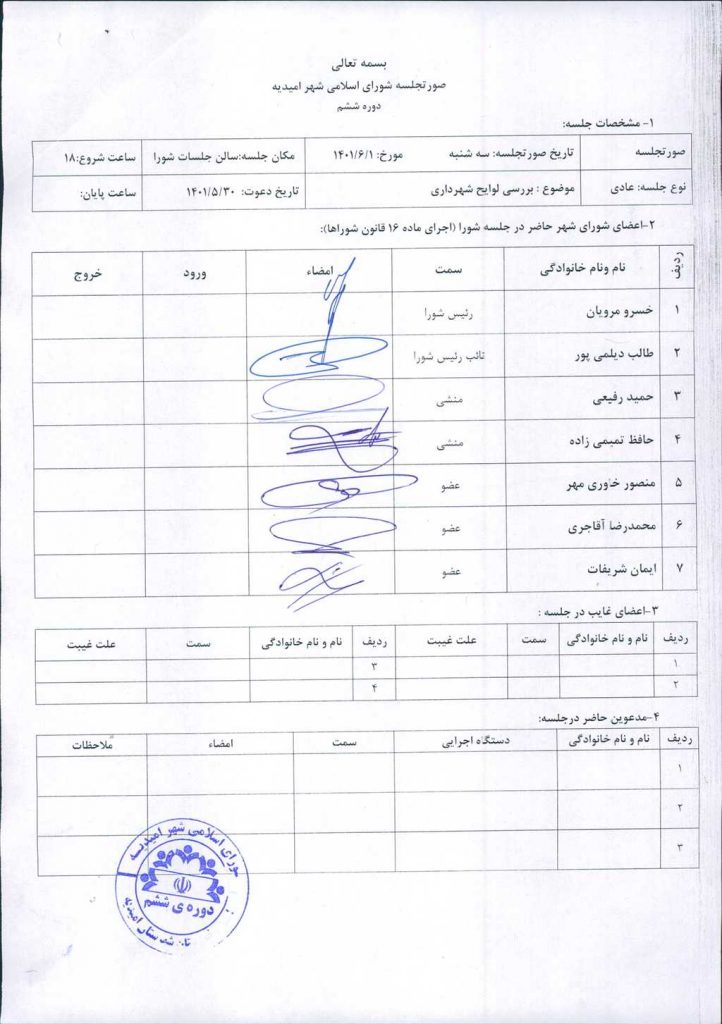 بسمه تعالی
صورتجلسه شورای اسلامی شهر امیدیه
دوره ششم
۱- مشخصات جلسه:
صورتجلسه تاریخ صورتجلسه: سه شنبه مورخ: ۱۴۰۱/۶/۱ مکان جلسه:سالن جلسات شورا ساعت شروع:۱۸
نوع جلسه: عادی موضوع : بررسی لوایح شهرداری تاریخ دعوت: ۱۴۰۱/۵/۳۰ ساعت پایان:
۲-اعضای شورای شهر حاضر در جلسه شورا (اجرای ماده ۱۶ قانون شوراها):
ردیف نام ونام خانوادگی سمت امضاء ورود خروج
۱ خسرو مرویان رئیس شورا
۲ طالب دیلمی پور نائب رئیس شورا
۳ حمید رفیعی منشی
۴ حافظ تمیمی زاده منشی
۵ منصور خاوری مهر عضو
۶ محمدرضا آقاجری عضو
۷ ایمان شریفات عضو
۳-اعضای غایب در جلسه :
ردیف نام و نام خانوادگی سمت علت غیبت ردیف نام و نام خانوادگی سمت علت غیبت
۱ ۳
۲ ۴
۴-مدعوین حاضر درجلسه:
ردیف نام و نام خانوادگی دستگاه اجرایی سمت امضاء ملاحظات
۱
۲
۳
شورای اسلامی شهر امیدیه
دوره ی ششم
شهرستان امیدیه